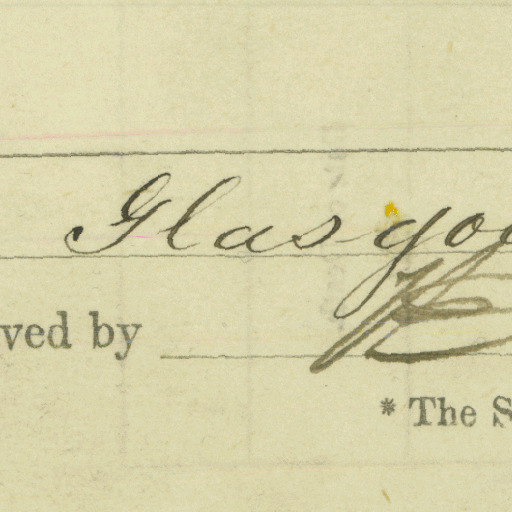 Glasgo
ved by
* The S